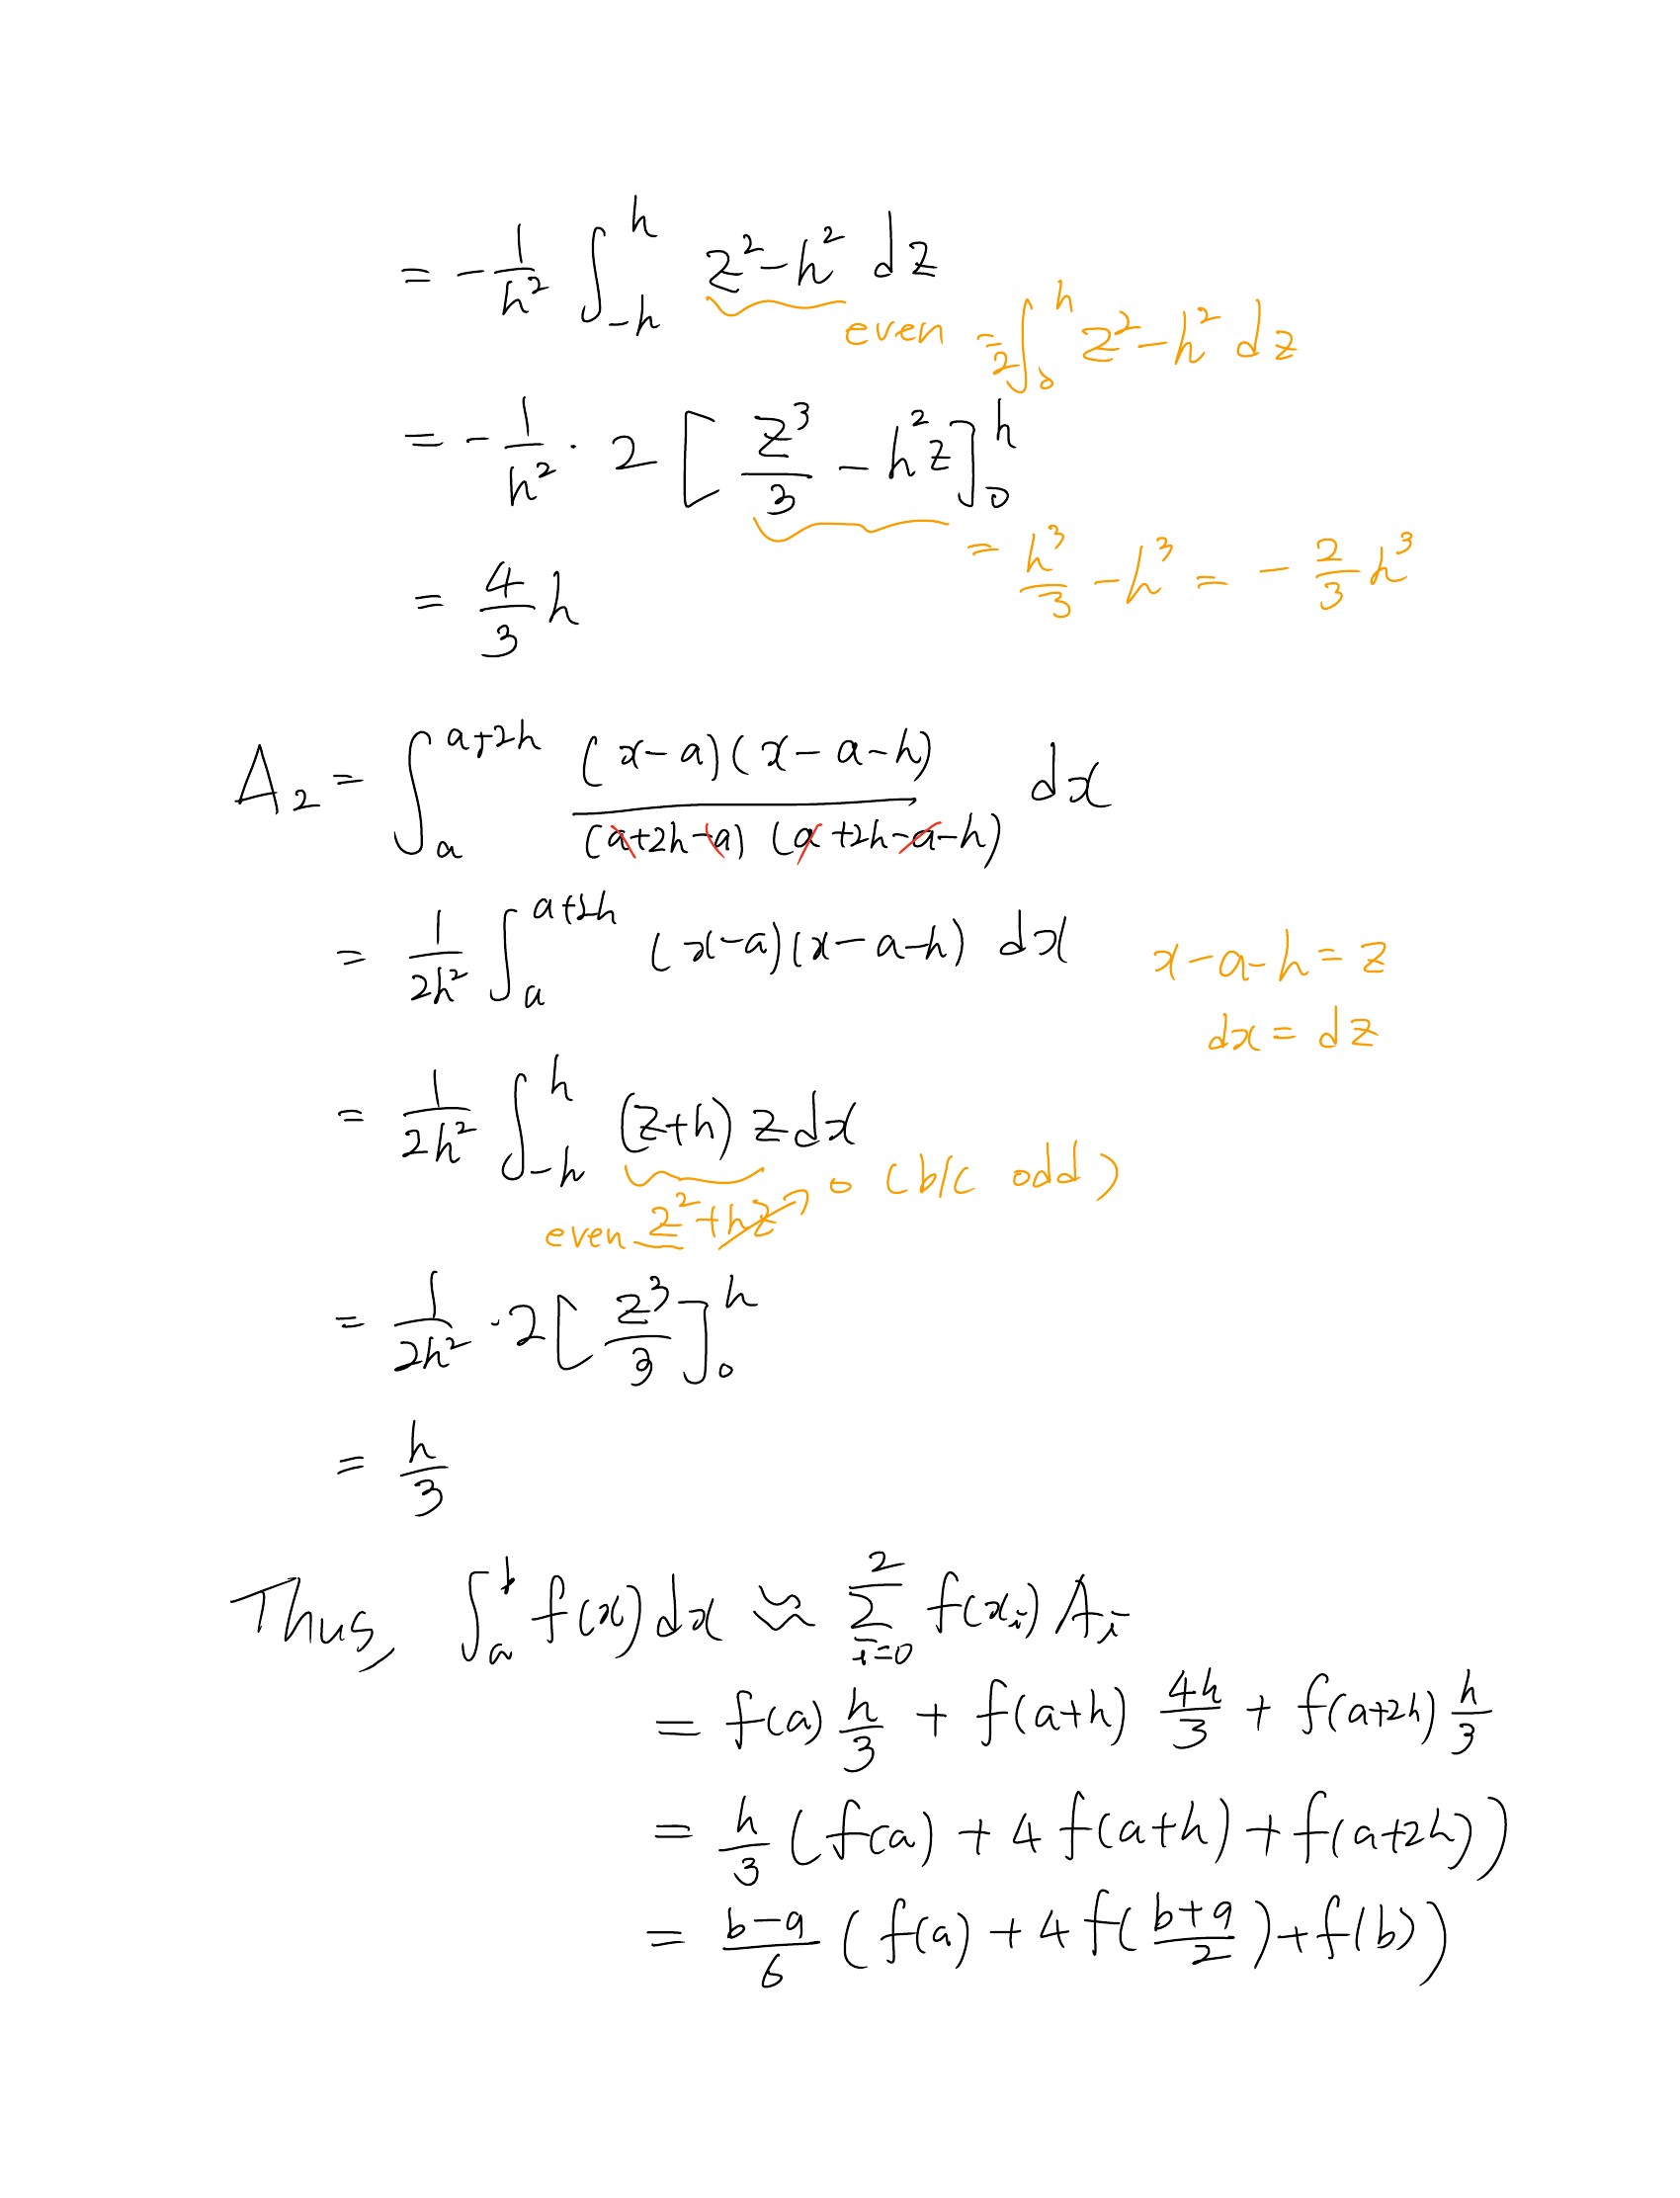 = -1/h² ∫_{-h}^{h} z²-h² dz
even = 2∫_0^h z²-h² dz
= -1/h² · 2 [ z³/3 - h²z ]_0^h
= h³/3 - h³ = - 2/3 h³
= 4/3 h
A₂ = ∫_a^{a+2h} (x-a)(x-a-h) / (a+2h-a)(a+2h-a-h) dx
= 1/2h² ∫_a^{a+2h} (x-a)(x-a-h) dx
x-a-h = z
dx = dz
= 1/2h² ∫_{-h}^{h} (z+h) z dx
even z²+hz → 0 (b/c odd)
= 1/2h² · 2 [ z³/3 ]_0^h
= h/3
Thus, ∫_a^b f(x) dx ≈ Σ_{i=0}^{2} f(x_i) A_i
= f(a) h/3 + f(a+h) 4h/3 + f(a+2h) h/3
= h/3 ( f(a) + 4 f(a+h) + f(a+2h))
= b-a/6 ( f(a) + 4 f( b+a/2 ) + f(b))